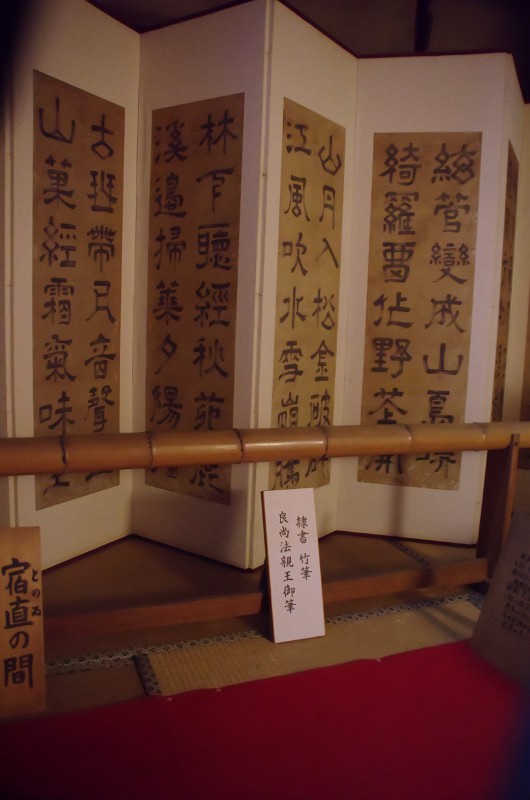 絃管變成山鳥哢
綺羅留作野花開
山月入松金破碎
江風吹水雪崩騰
林下聽經秋苑鹿
溪邊掃葉夕陽
古班帶尺音聲
山菓經霜氣味
隷書 竹筆
良尚法親王御筆
宿直の間
とのゐ